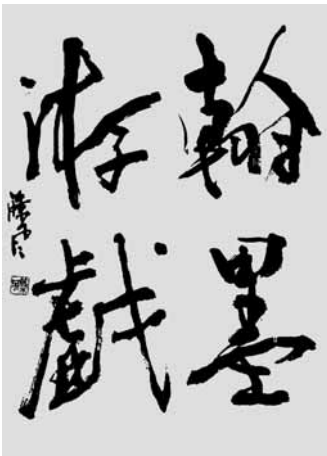 翰墨
游戲